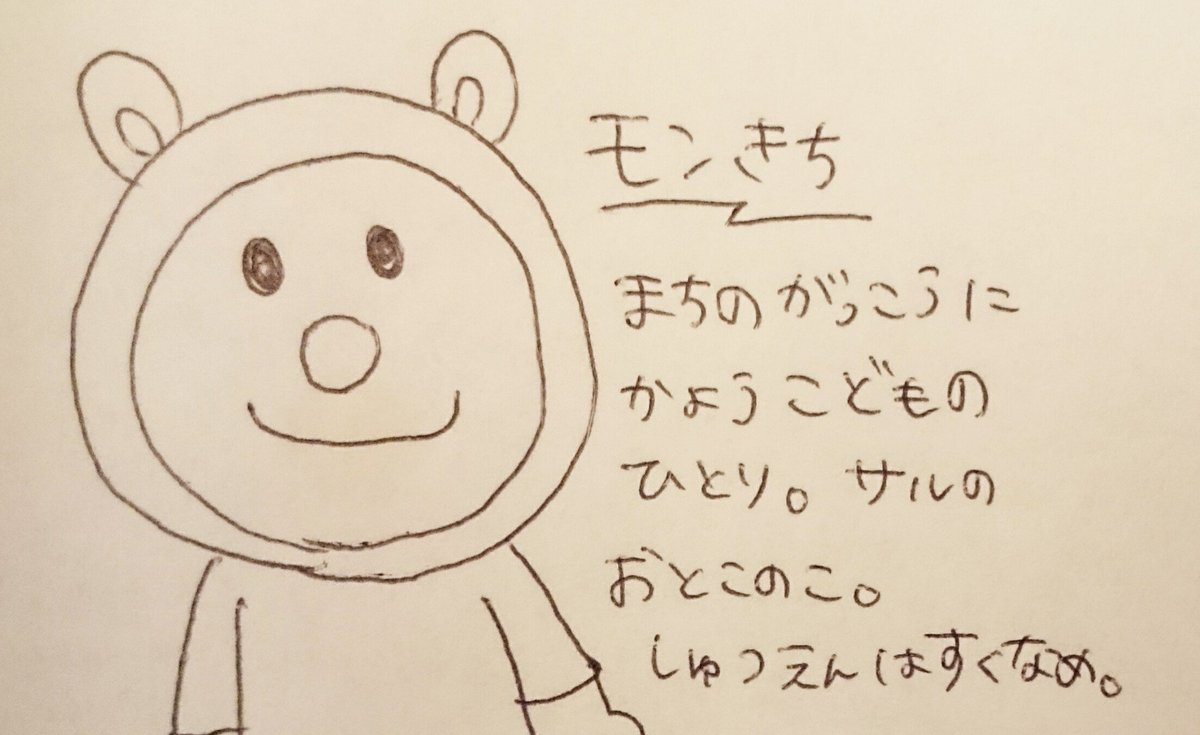 モンきち
まちのがっこうに
かようこどもの
ひとり。サルの
おとこのこ。
しゅつえんはすくなめ。